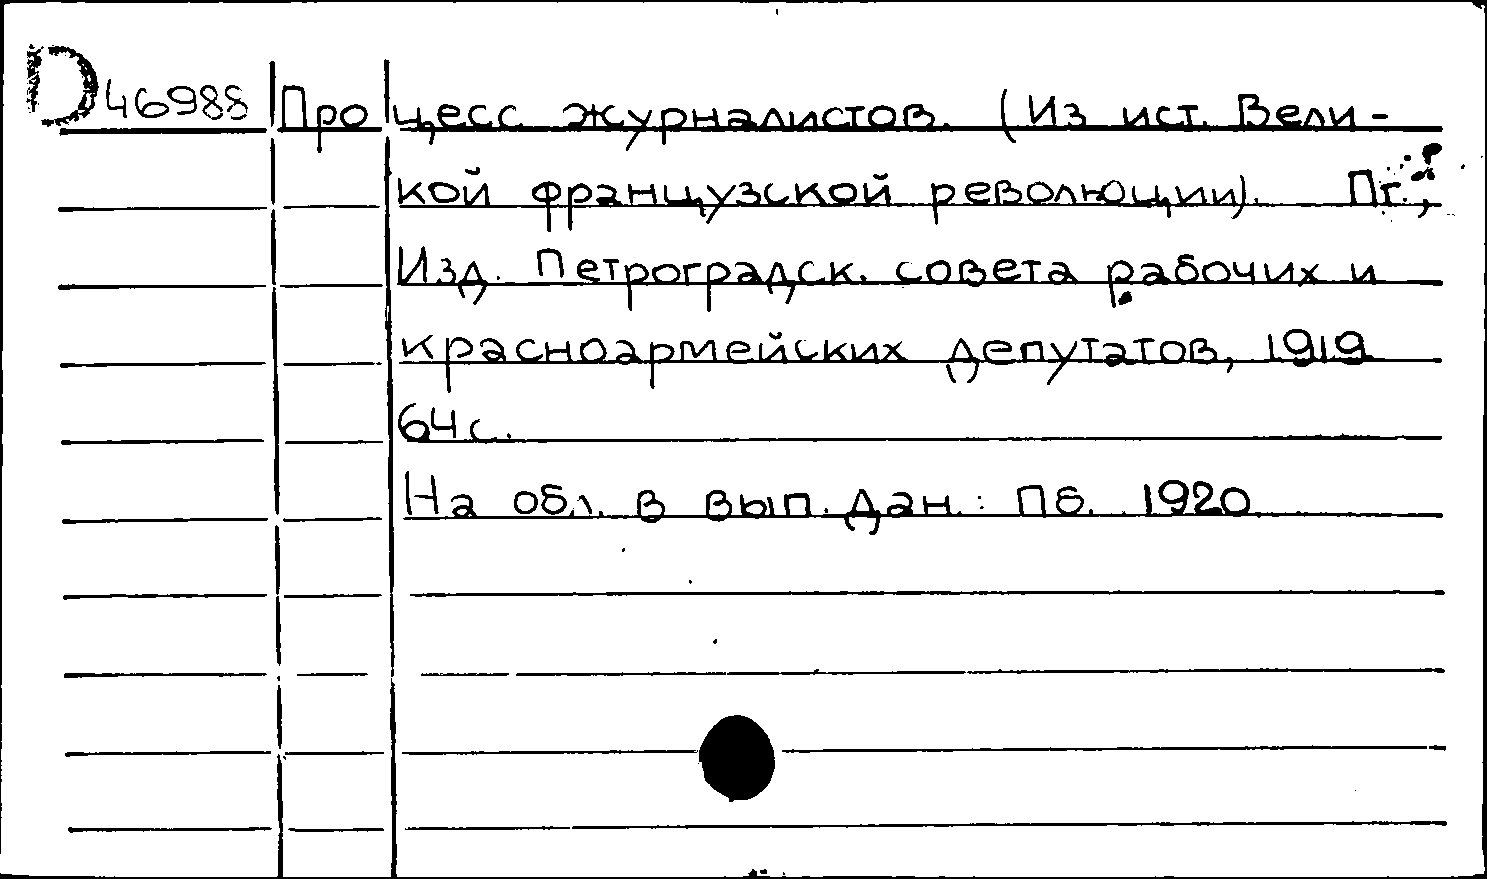 D46988 Процесс журналистов. (Из ист. Вели-
кой французской революции). Пг.,
Изд. Петроградск. совета рабочих и
красноармейских депутатов, 1919
64 с.
На обл. в вып. дан.: Пб. 1920